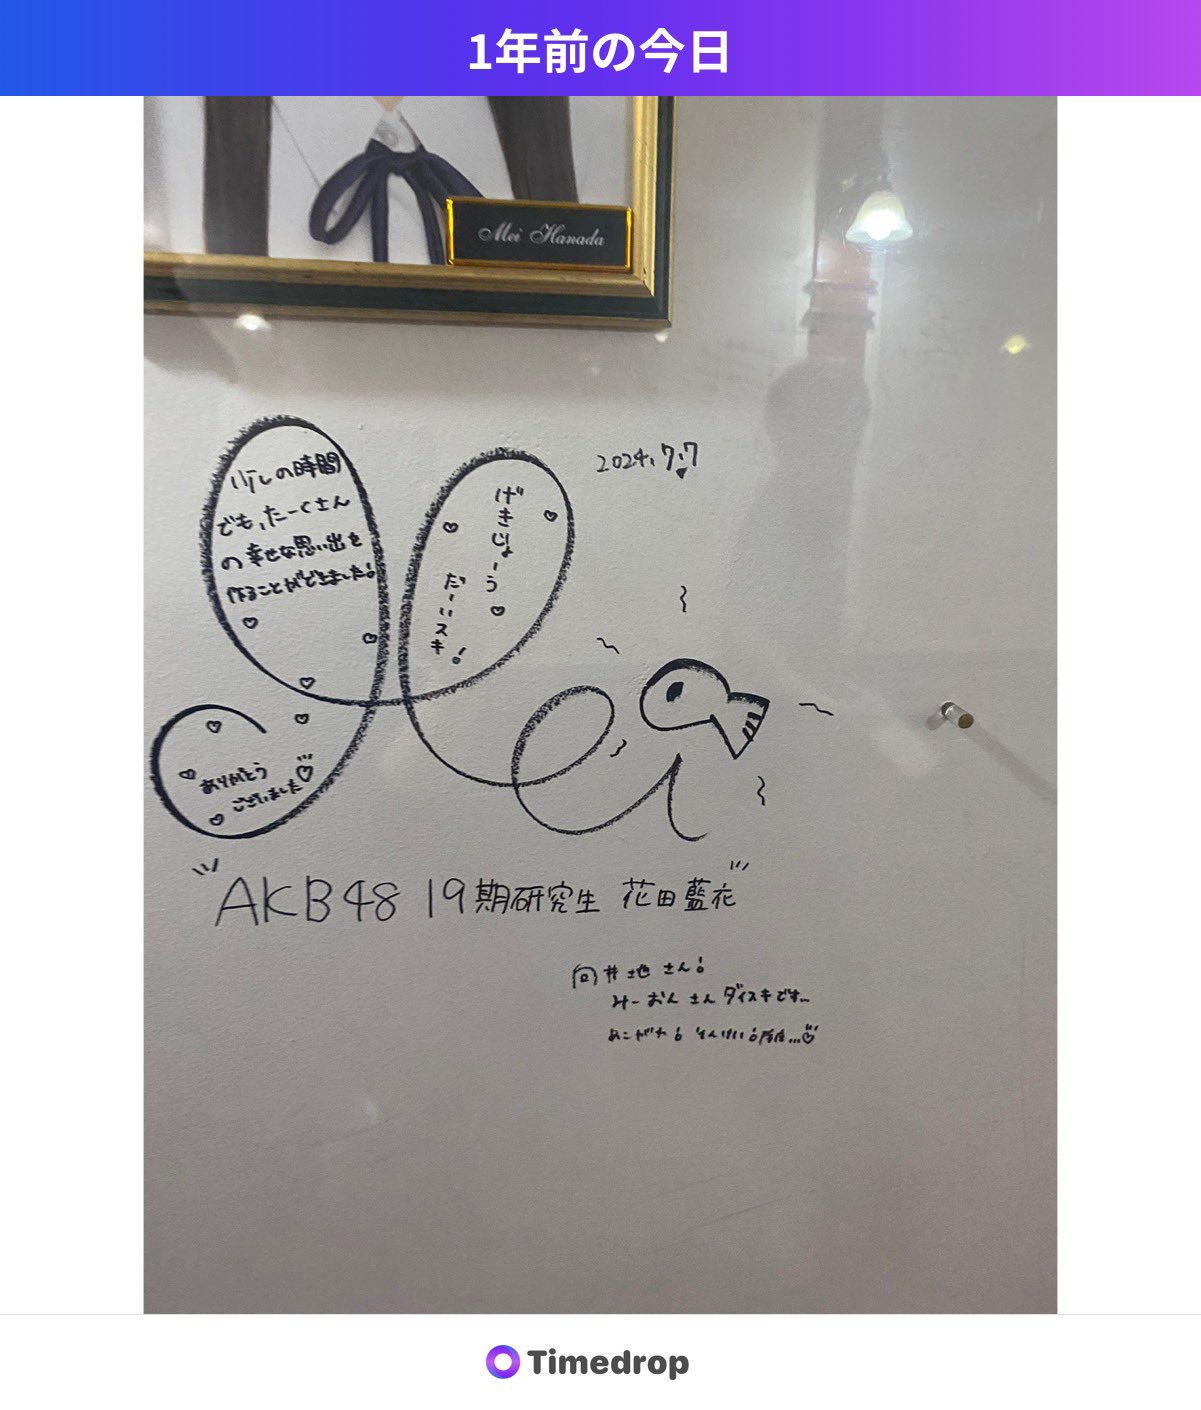 1年前の今日
Mei Hanada
2024.7.7
少しの時間
でも、たーくさん
の幸せな思い出を
作ることができました!
げきじょーう
だーいスキ!
ありがとう
ございました
AKB48 19期研究生 花田藍衣
向井地さん!
みーおん さん ダイスキです...
あこがれ!
Timedrop